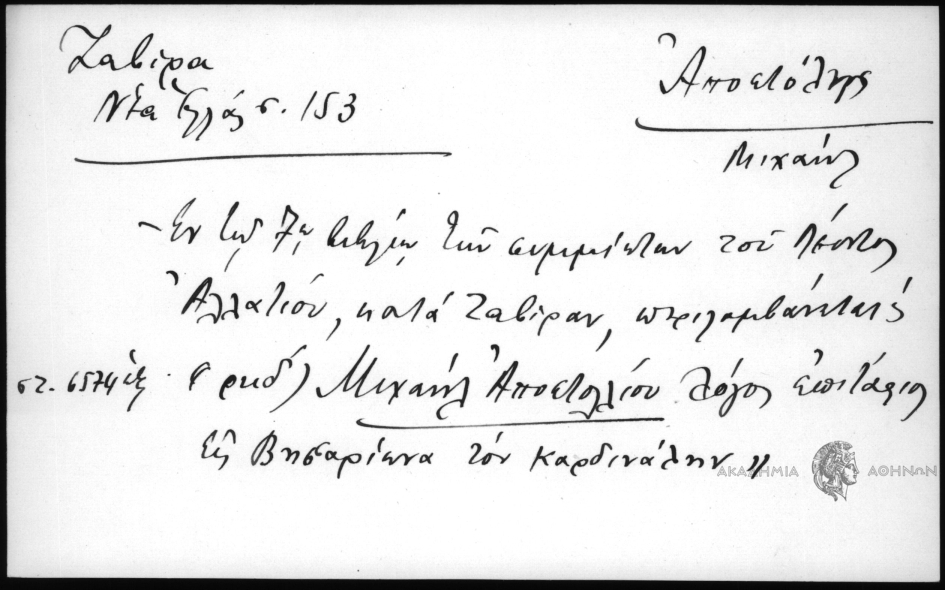 Ζαβίρα
Νέα Ἑλλάς σ. 153
Ἀποστόλης
Μιχαήλ
– Ἐν τῷ 7ῳ βιβλίῳ τῶν συμμίκτων τοῦ Λέοντος
Ἀλλατίου, κατά Ζαβίραν, περιλαμβάνεται
(ρκδ) Μιχαήλ Ἀποστολίου λόγος ἐπιτάφιος
στ. 6574
εἰς Βησαρίωνα τόν Καρδινάλην»
ΑΚΑΔΗΜΙΑ ΑΘΗΝΩΝ